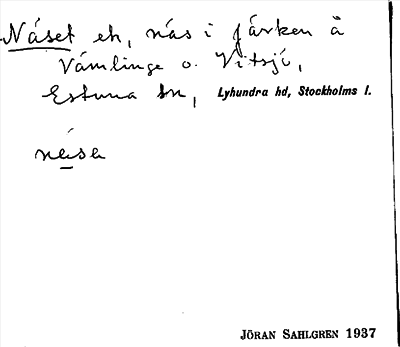 Näset eh, näs i Järken å
Vämlinge o. Vitsjö,
Estuna sn, Lyhundra hd, Stockholms l.
näse
JÖRAN SAHLGREN 1937